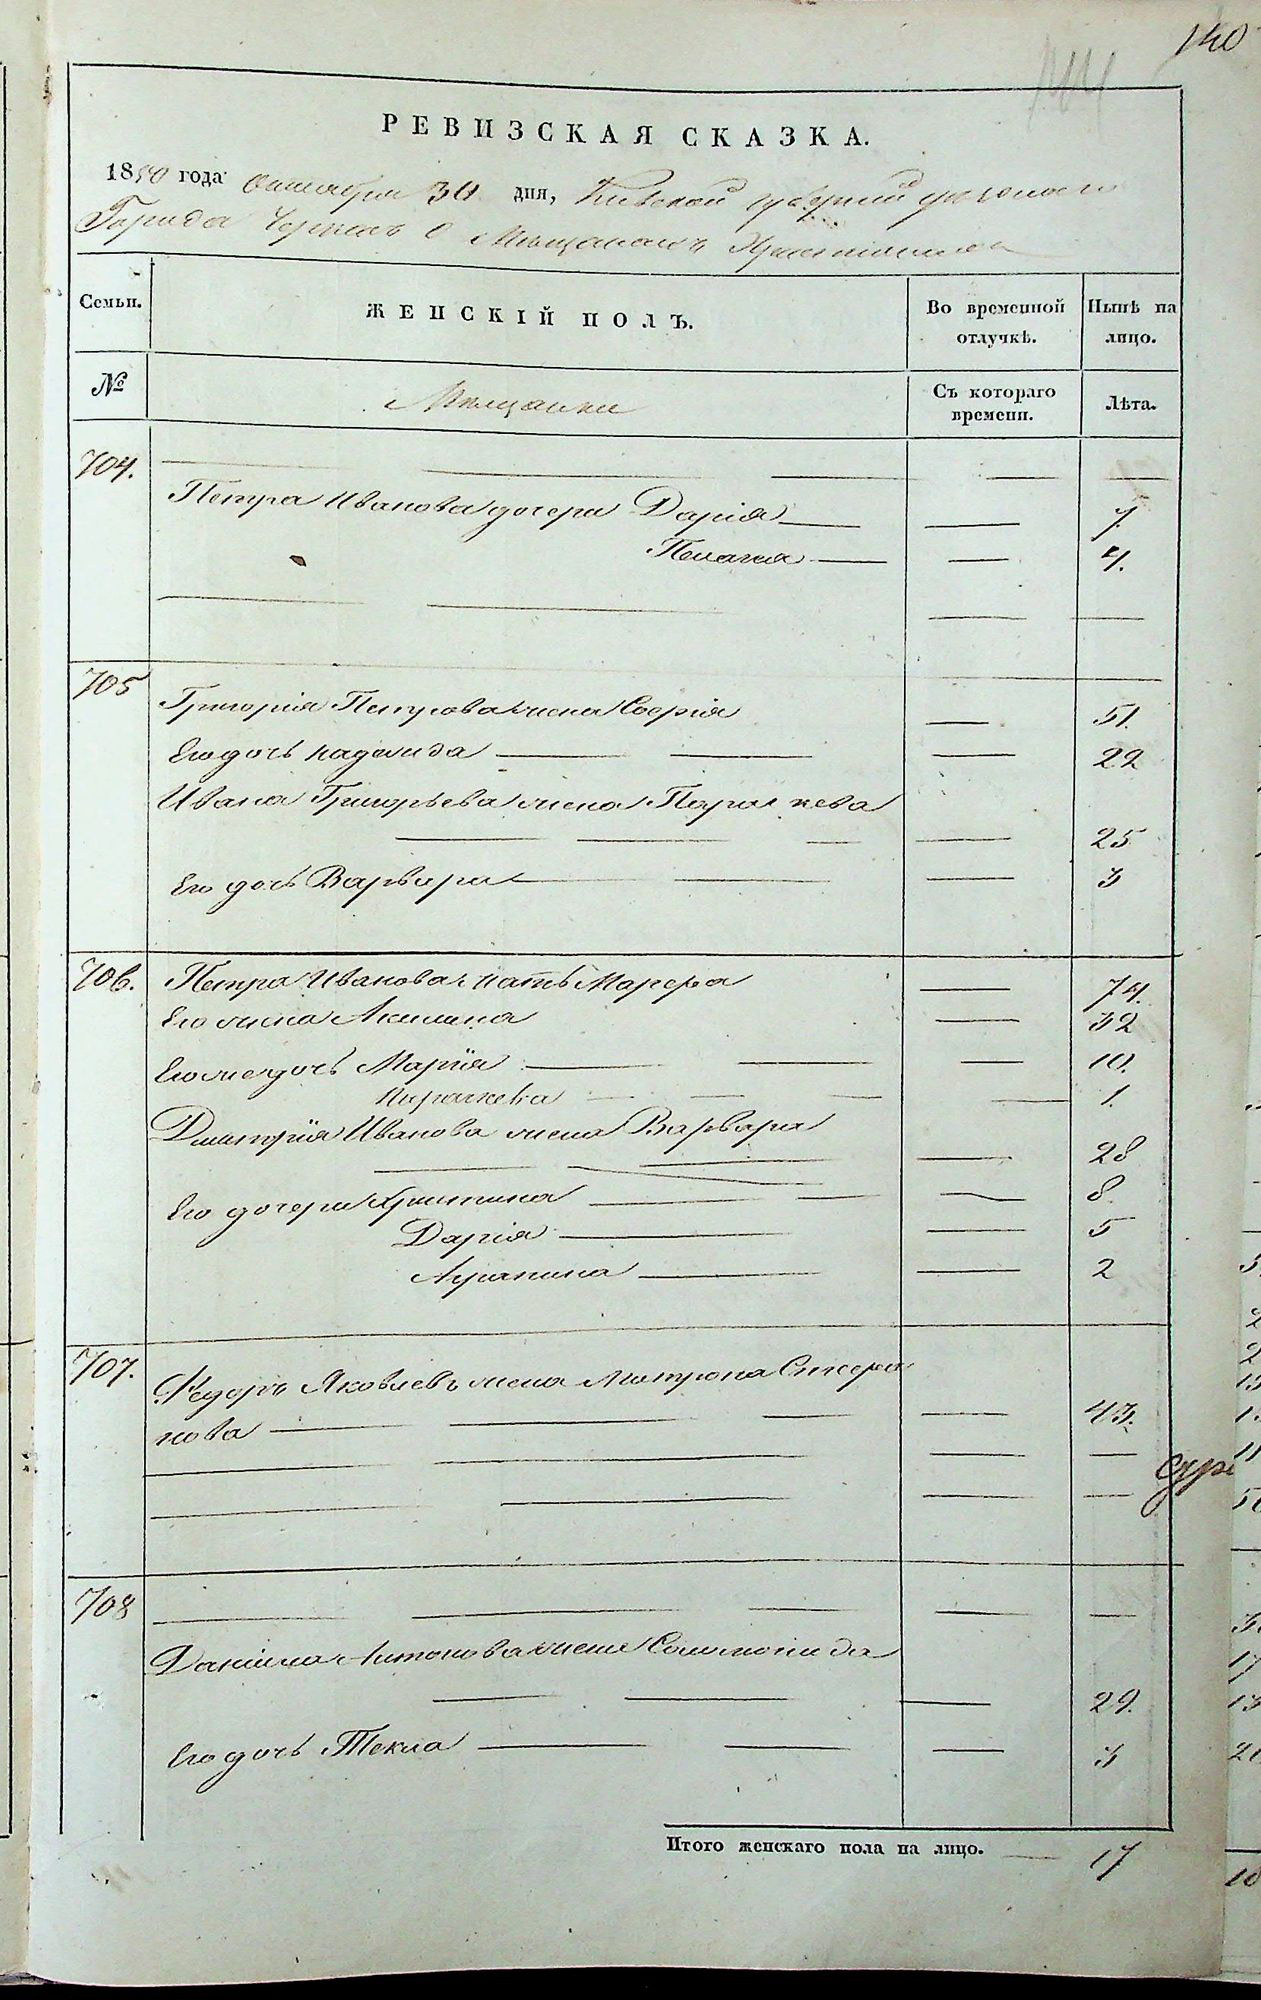 140
РЕВИЗСКАЯ СКАЗКА.
1850 года Октября 30 дня, Киевской губерніи уезднаго
Города Черкасъ О Мещанахъ Христіанах
Семьи. ЖЕНСКІЙ ПОЛЪ. Во временной отлучкѣ. Нынѣ на лицо.
№ Мещанки Съ котораго времени. Лѣта.
704.
Петра Иванова дочери Дарія 7.
Пелагея 4.
705
Григорія Петрова жена Софія 51.
Его дочь Надежда 22
Ивана Григорьева жена Параскева
25
Его дочь Варвара 3
706. Петра Иванова мать Марфа 74.
Его жена Акилина 32
Его же дочь Марія 10.
Параскева 1.
Дмитрія Иванова жена Варвара
28
Его дочери Христина 8.
Дарія 5
Агрипина 2
707. Федоръ Яковлевъ жена Матрона
43.
708
Даніила Антонова жена Соломонида
29.
Его дочь Текла 3
Итого женскаго пола на лицо. 17